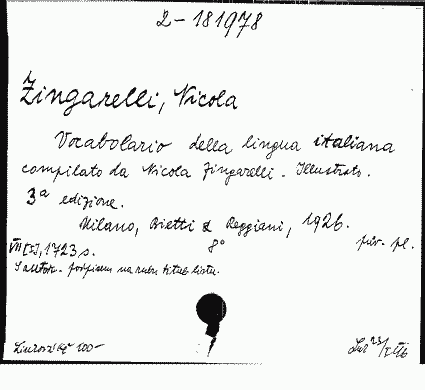 2-181978
Zingarelli, Nicola
Vocabolario della lingua italiana
compilato da Nicola Zingarelli. Illustrato.
3ª edizione.
Milano, Bietti & Reggiani, 1926.
8° pův. pl.
VII [I], 1723 s.
S autor. podpisem na rubu titul. listu.
100-